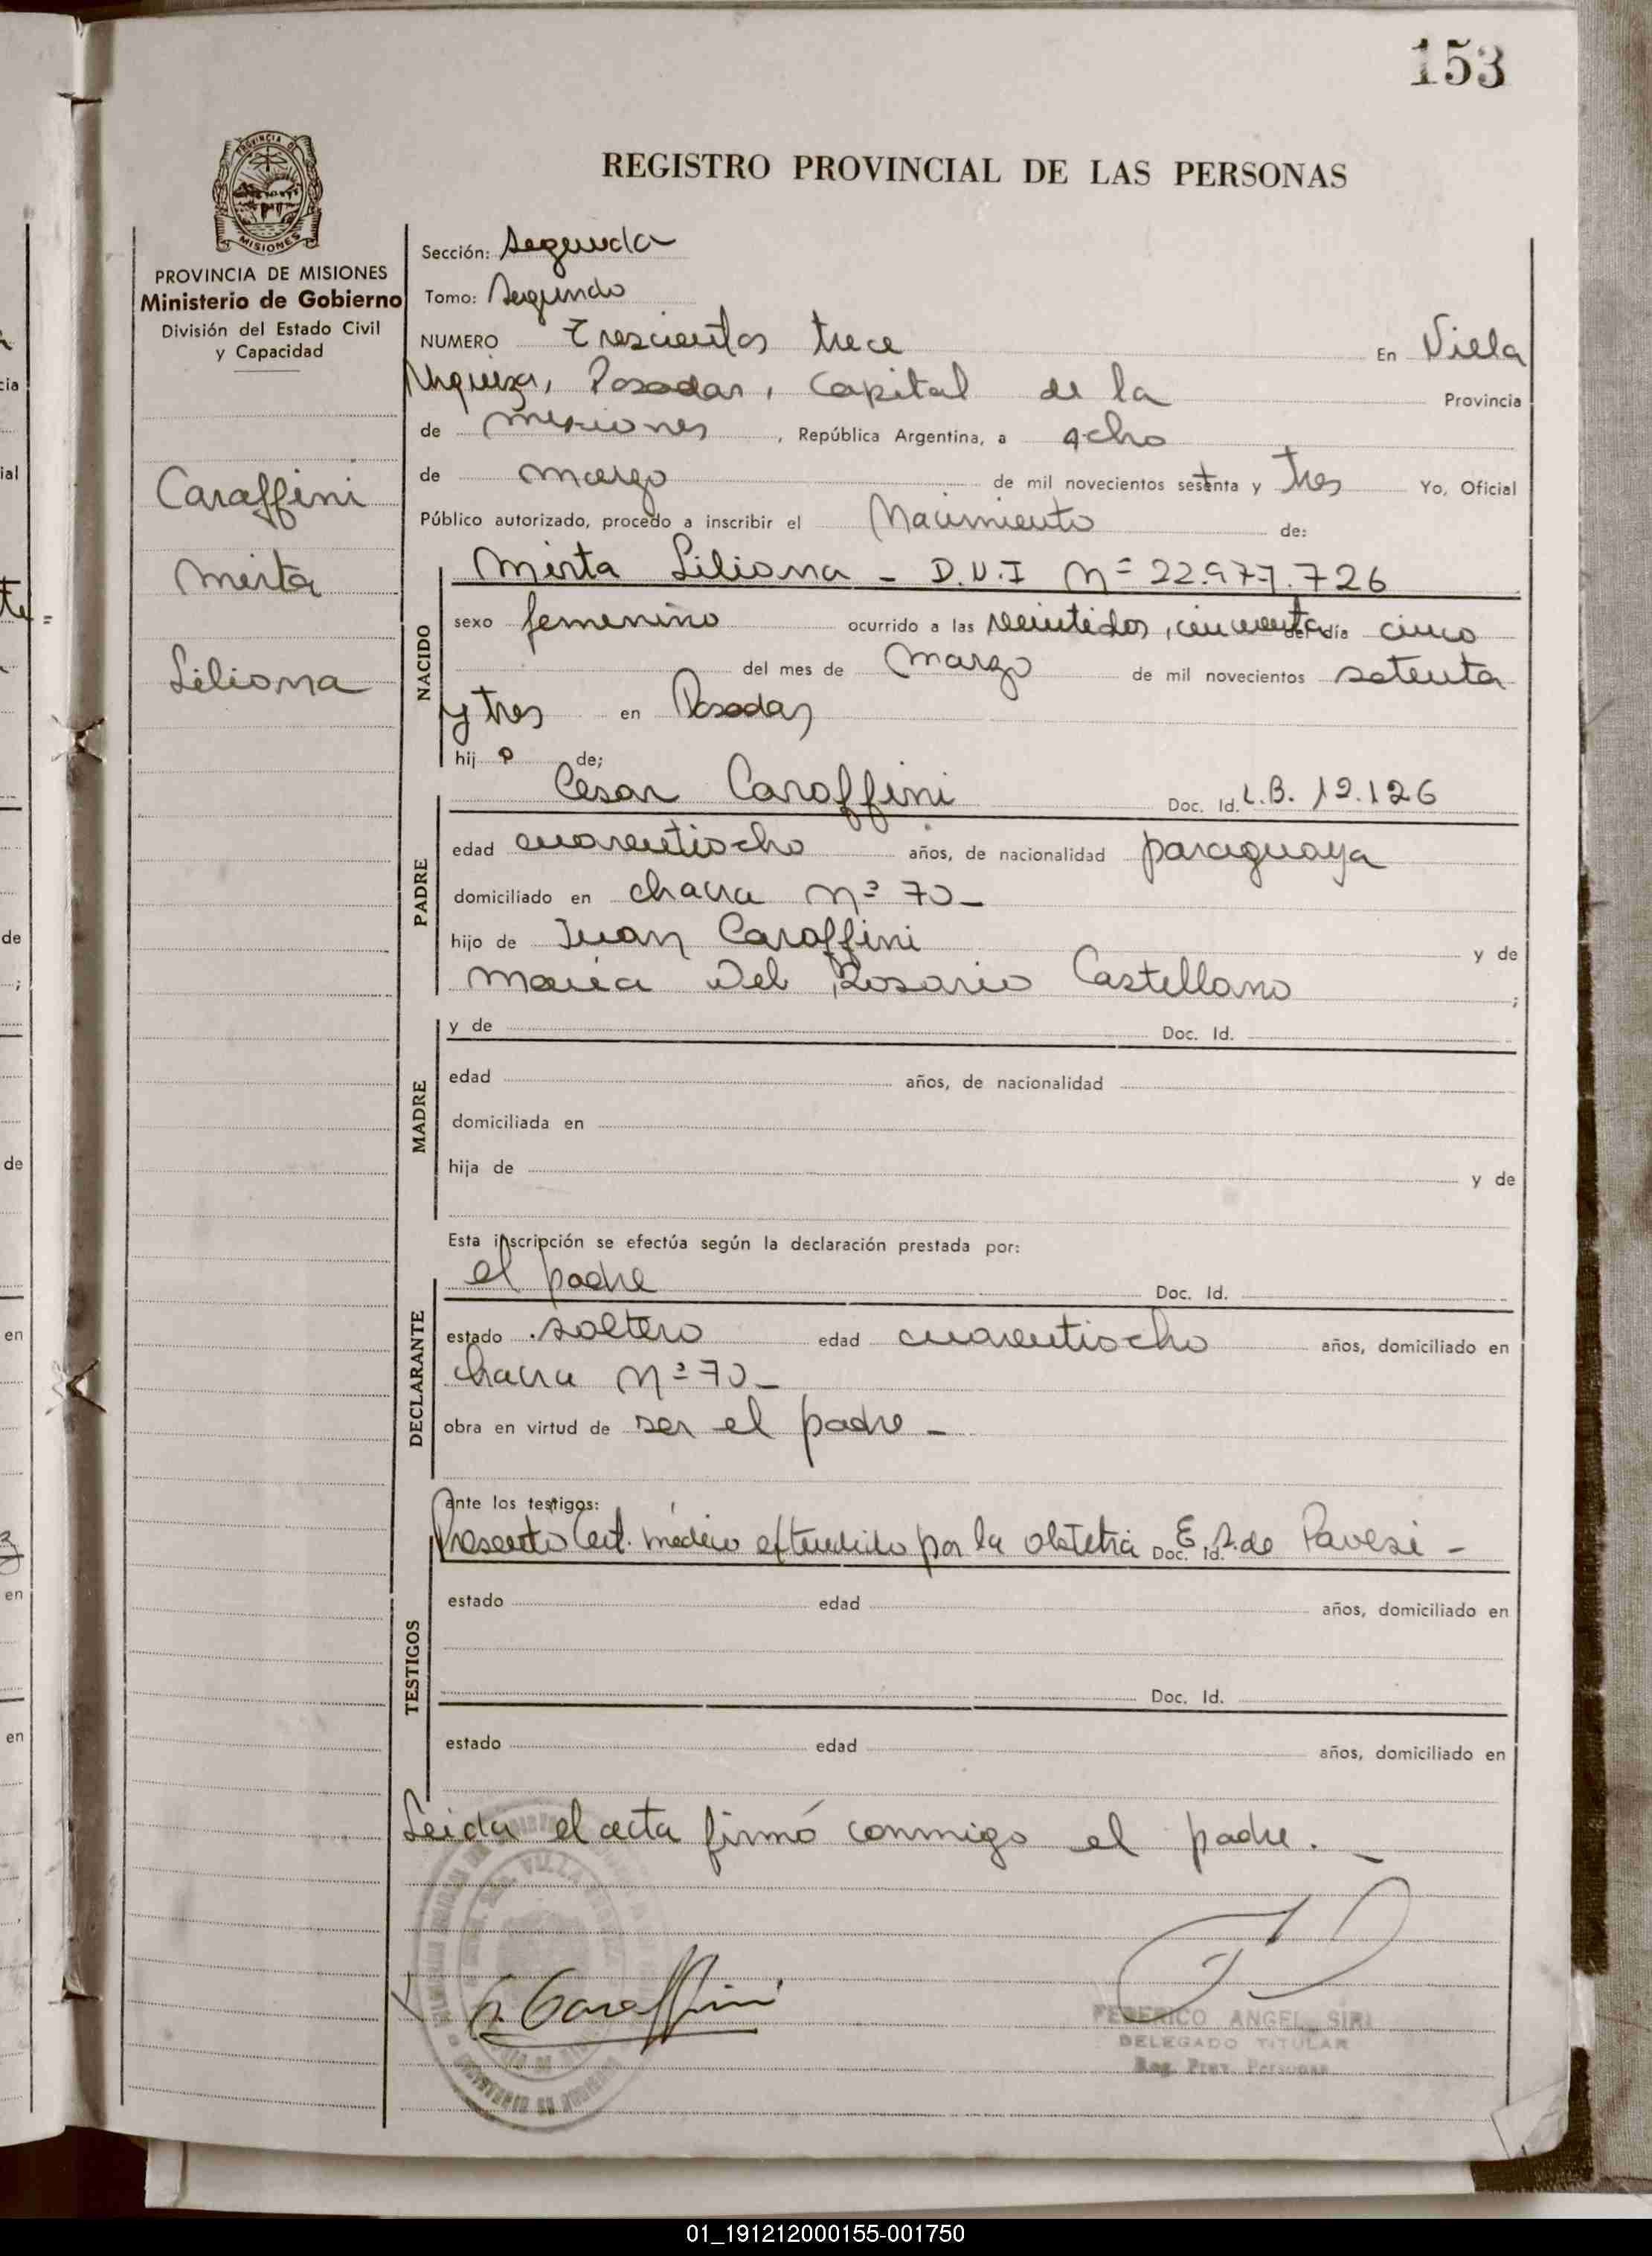 153
REGISTRO PROVINCIAL DE LAS PERSONAS
PROVINCIA DE MISIONES
PROVINCIA DE MISIONES
Ministerio de Gobierno
División del Estado Civil
y Capacidad
Caraffini
Mirta
Liliana
Sección: Segunda
Tomo: Segundo
NUMERO Trescientos trece En Villa
Urquiza, Posadas, Capital de la Provincia
de Misiones, República Argentina, a ocho
de marzo de mil novecientos setenta y tres Yo, Oficial
Público autorizado, procedo a inscribir el Nacimiento de:
NACIDO
Mirta Liliana - D.N.I Nº 22.977.726
sexo femenino ocurrido a las veintidos, cincuenta del día cinco
del mes de marzo de mil novecientos setenta
y tres en Posadas
hij a de;
PADRE
Cesar Caraffini Doc. Id. L.B. 12.126
edad cuarentiocho años, de nacionalidad paraguaya
domiciliado en chacra Nº 70-
hijo de Juan Caraffini y de
Maria Del Rosario Castellano ;
MADRE
y de Doc. Id.
edad años, de nacionalidad
domiciliada en
hija de y de
Esta inscripción se efectúa según la declaración prestada por:
DECLARANTE
el padre Doc. Id.
estado soltero edad cuarentiocho años, domiciliado en
chacra Nº 70-
obra en virtud de ser el padre -
ante los testigos:
TESTIGOS
Presento Cert. médico extendido por la obstetra Doc. Id. E. de Pavesi -
estado edad años, domiciliado en
Doc. Id.
estado edad años, domiciliado en
Leida el acta firmó conmigo el padre. -
C. Caraffini
FEDERICO ANGEL SIRI
DELEGADO TITULAR
Reg. Prov. Personas
01_191212000155-001750